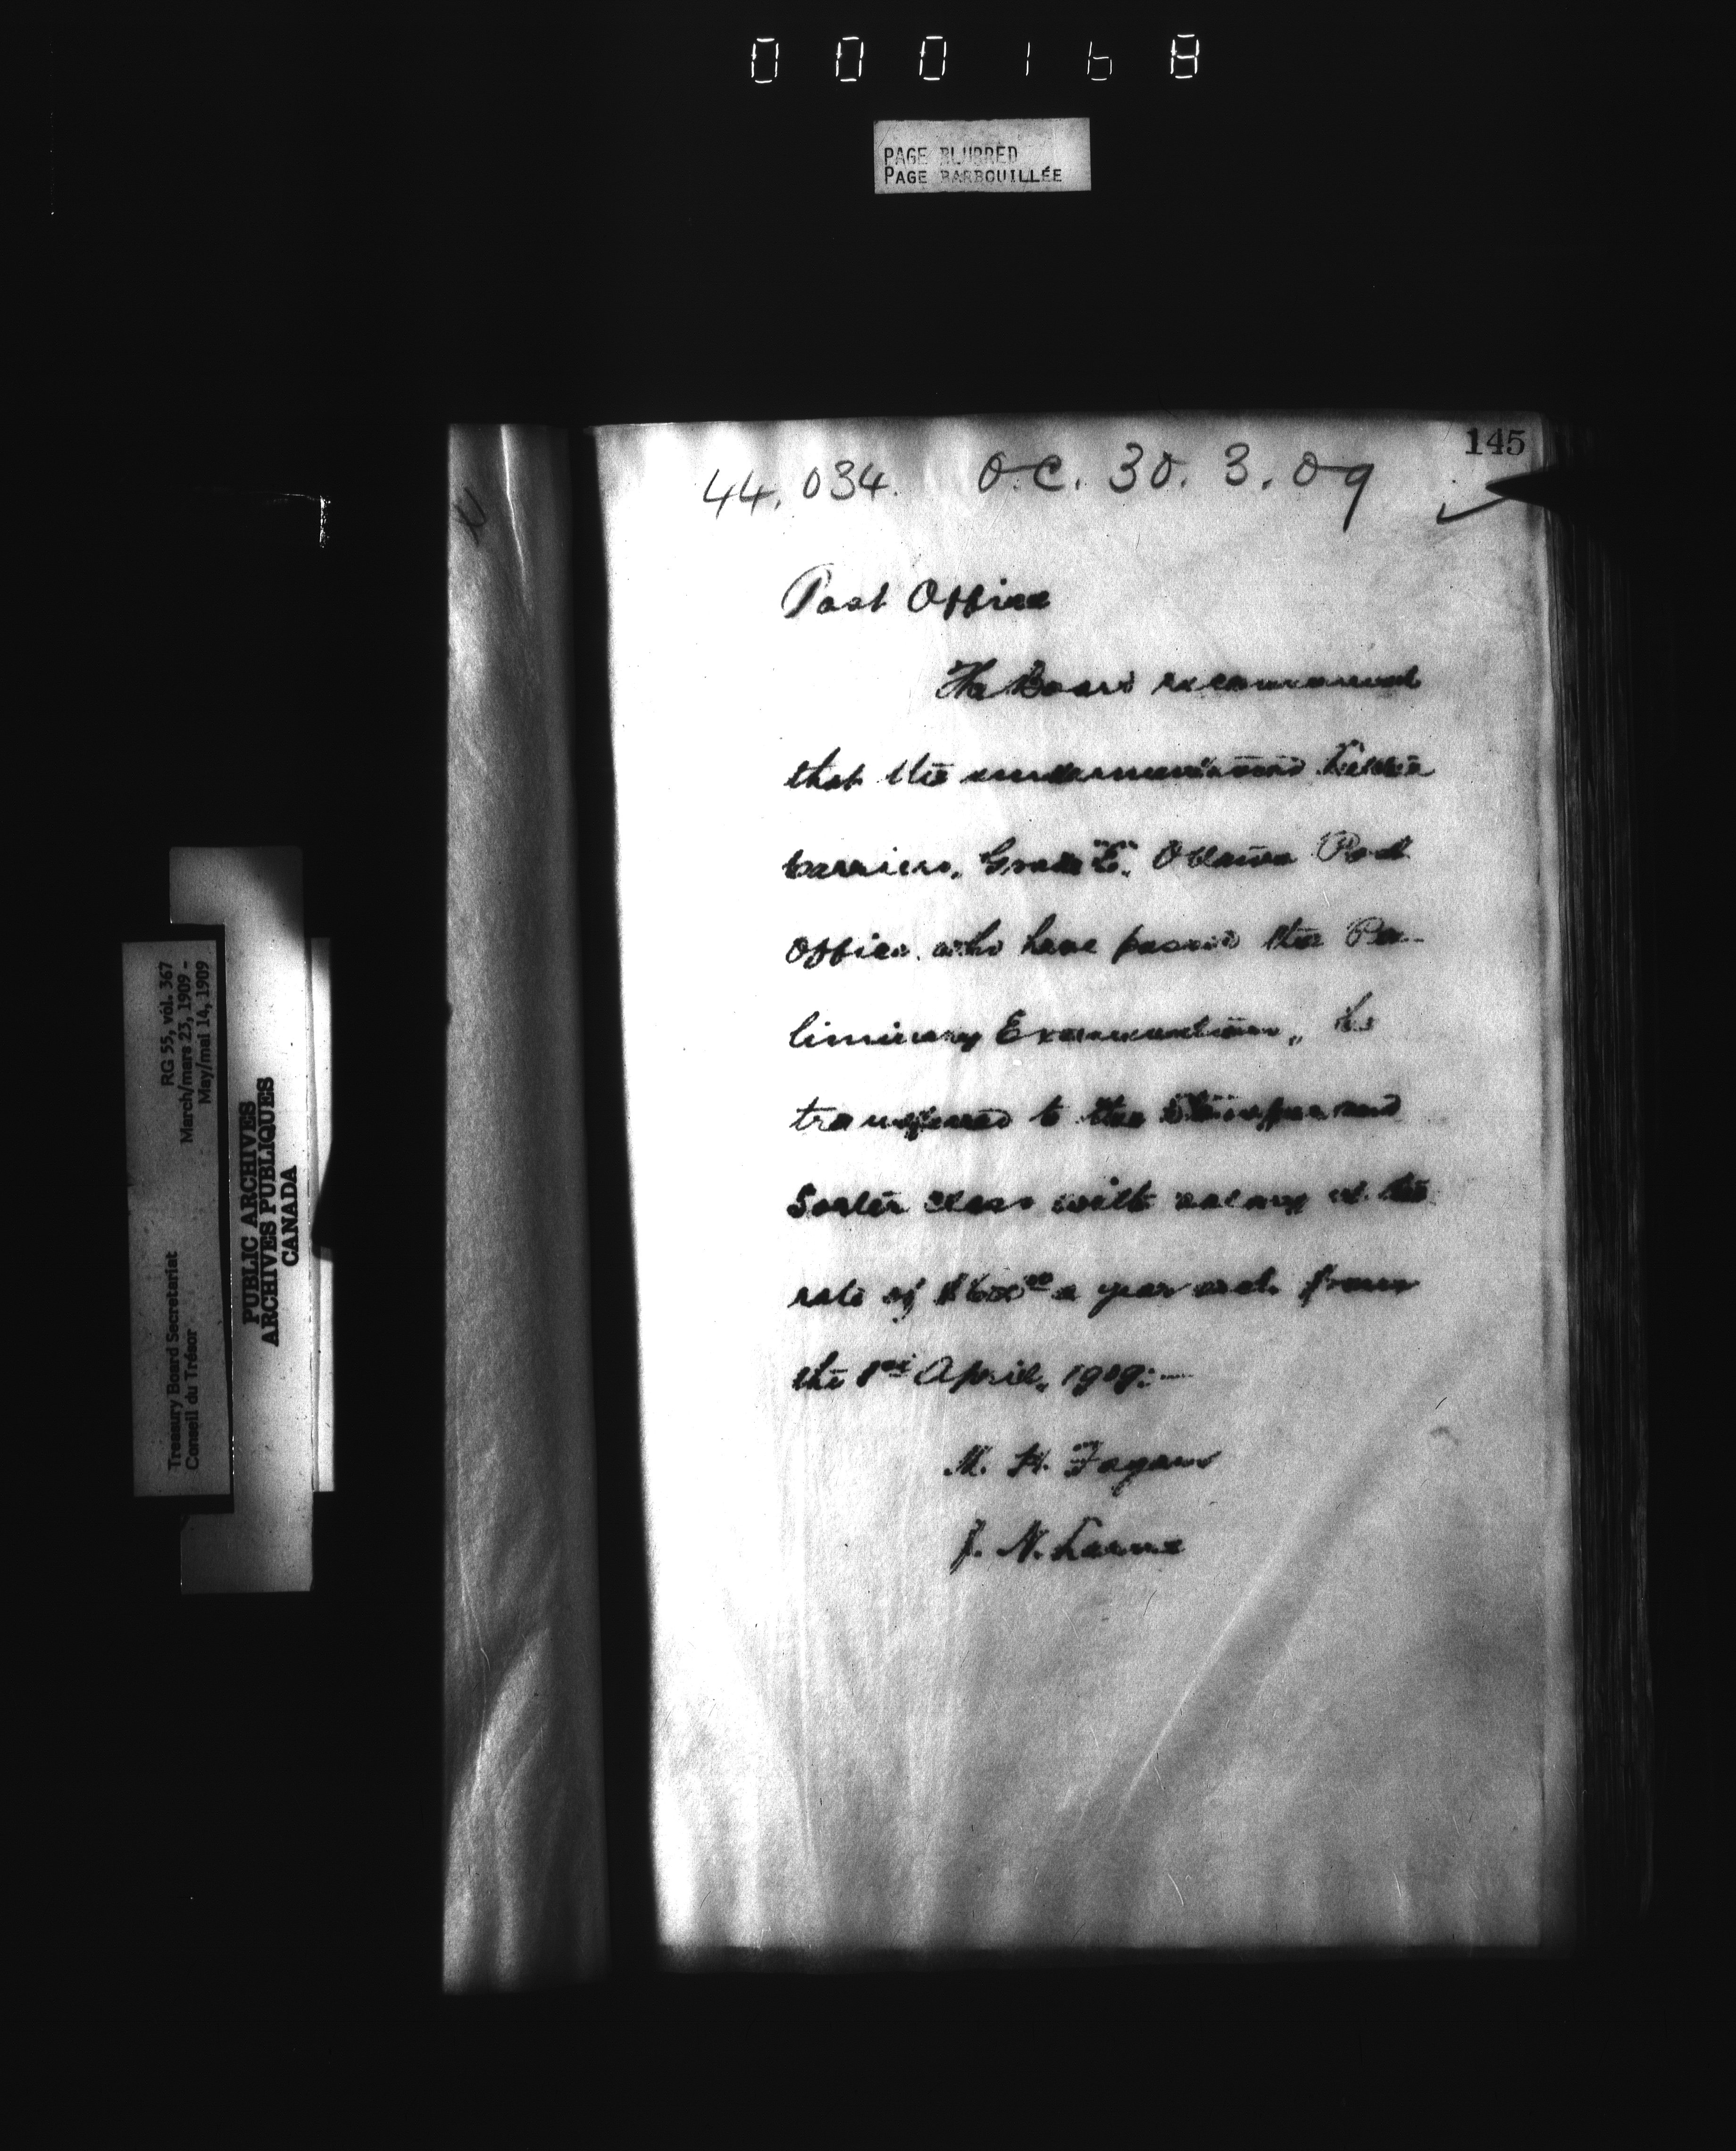 000168
PAGE BLURRED
PAGE BARBOUILLÉE
145
44,034. O.C. 30.3.09
Post Office
The Board recommend
that the undermentioned Letter
Carriers, Grade "E", Ottawa Post
Office, who have passed the Pre-
liminary Examination, be
transferred to the Stamper and
Sorter class with salary at the
rate of $600⁰⁰ a year each from
the 1st April, 1909:—
M. H. Fagan
J. N.
RG 55, vol. 367
March/mars 23, 1909 -
May/mai 14, 1909
Treasury Board Secretariat
Conseil du Trésor
PUBLIC ARCHIVES
ARCHIVES PUBLIQUES
CANADA